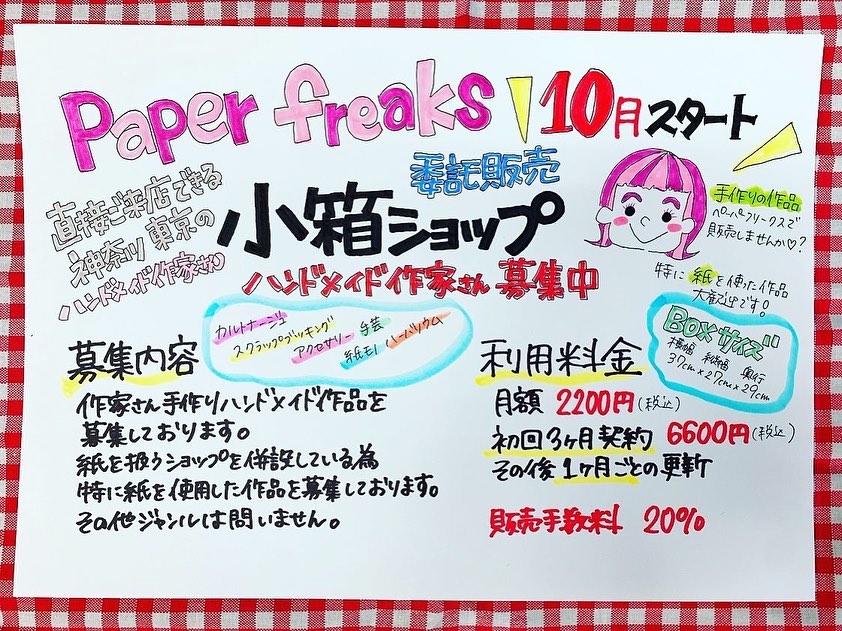 Paper freaks 10月スタート
委託販売
小箱ショップ
ハンドメイド作家さん 募集中
直接ご来店できる
神奈川 東京の
ハンドメイド作家さん
手作りの作品
ペーパーフリークスで
販売しませんか♡?
特に 紙を使った作品
大歓迎です!
カルトナージュ
スクラップブッキング
アクセサリー 手芸
紙モノ ハーバリウム
BOXサイズ
横幅 縦幅 奥行
37cm×27cm×29cm
募集内容
作家さん手作りハンドメイド作品を
募集しております。
紙を扱うショップを併設している為
特に紙を使用した作品を募集しております。
その他ジャンルは問いません。
利用料金
月額 2200円(税込)
初回3ヶ月契約 6600円(税込)
その後1ヶ月ごとの更新
販売手数料 20%